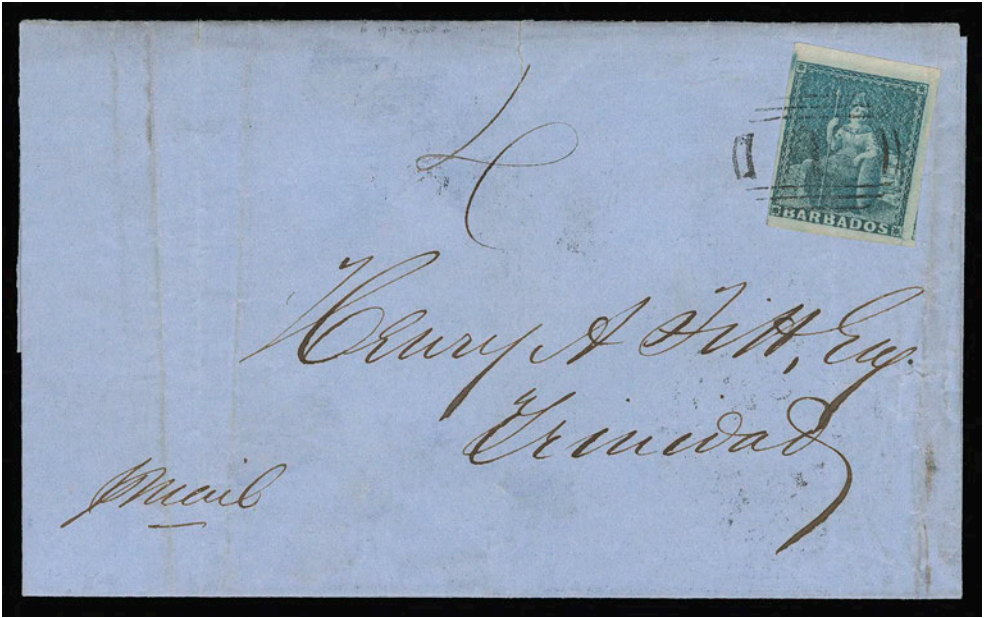 4
BARBADOS
Henry A Fitt, Esq.
Trinidad
p mail